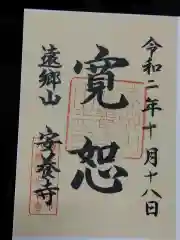 令和二年十月十八日
寛恕
遠郷山
安養寺